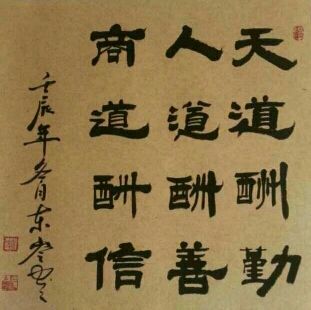 天道酬勤
人道酬善
商道酬信
壬辰年冬月东